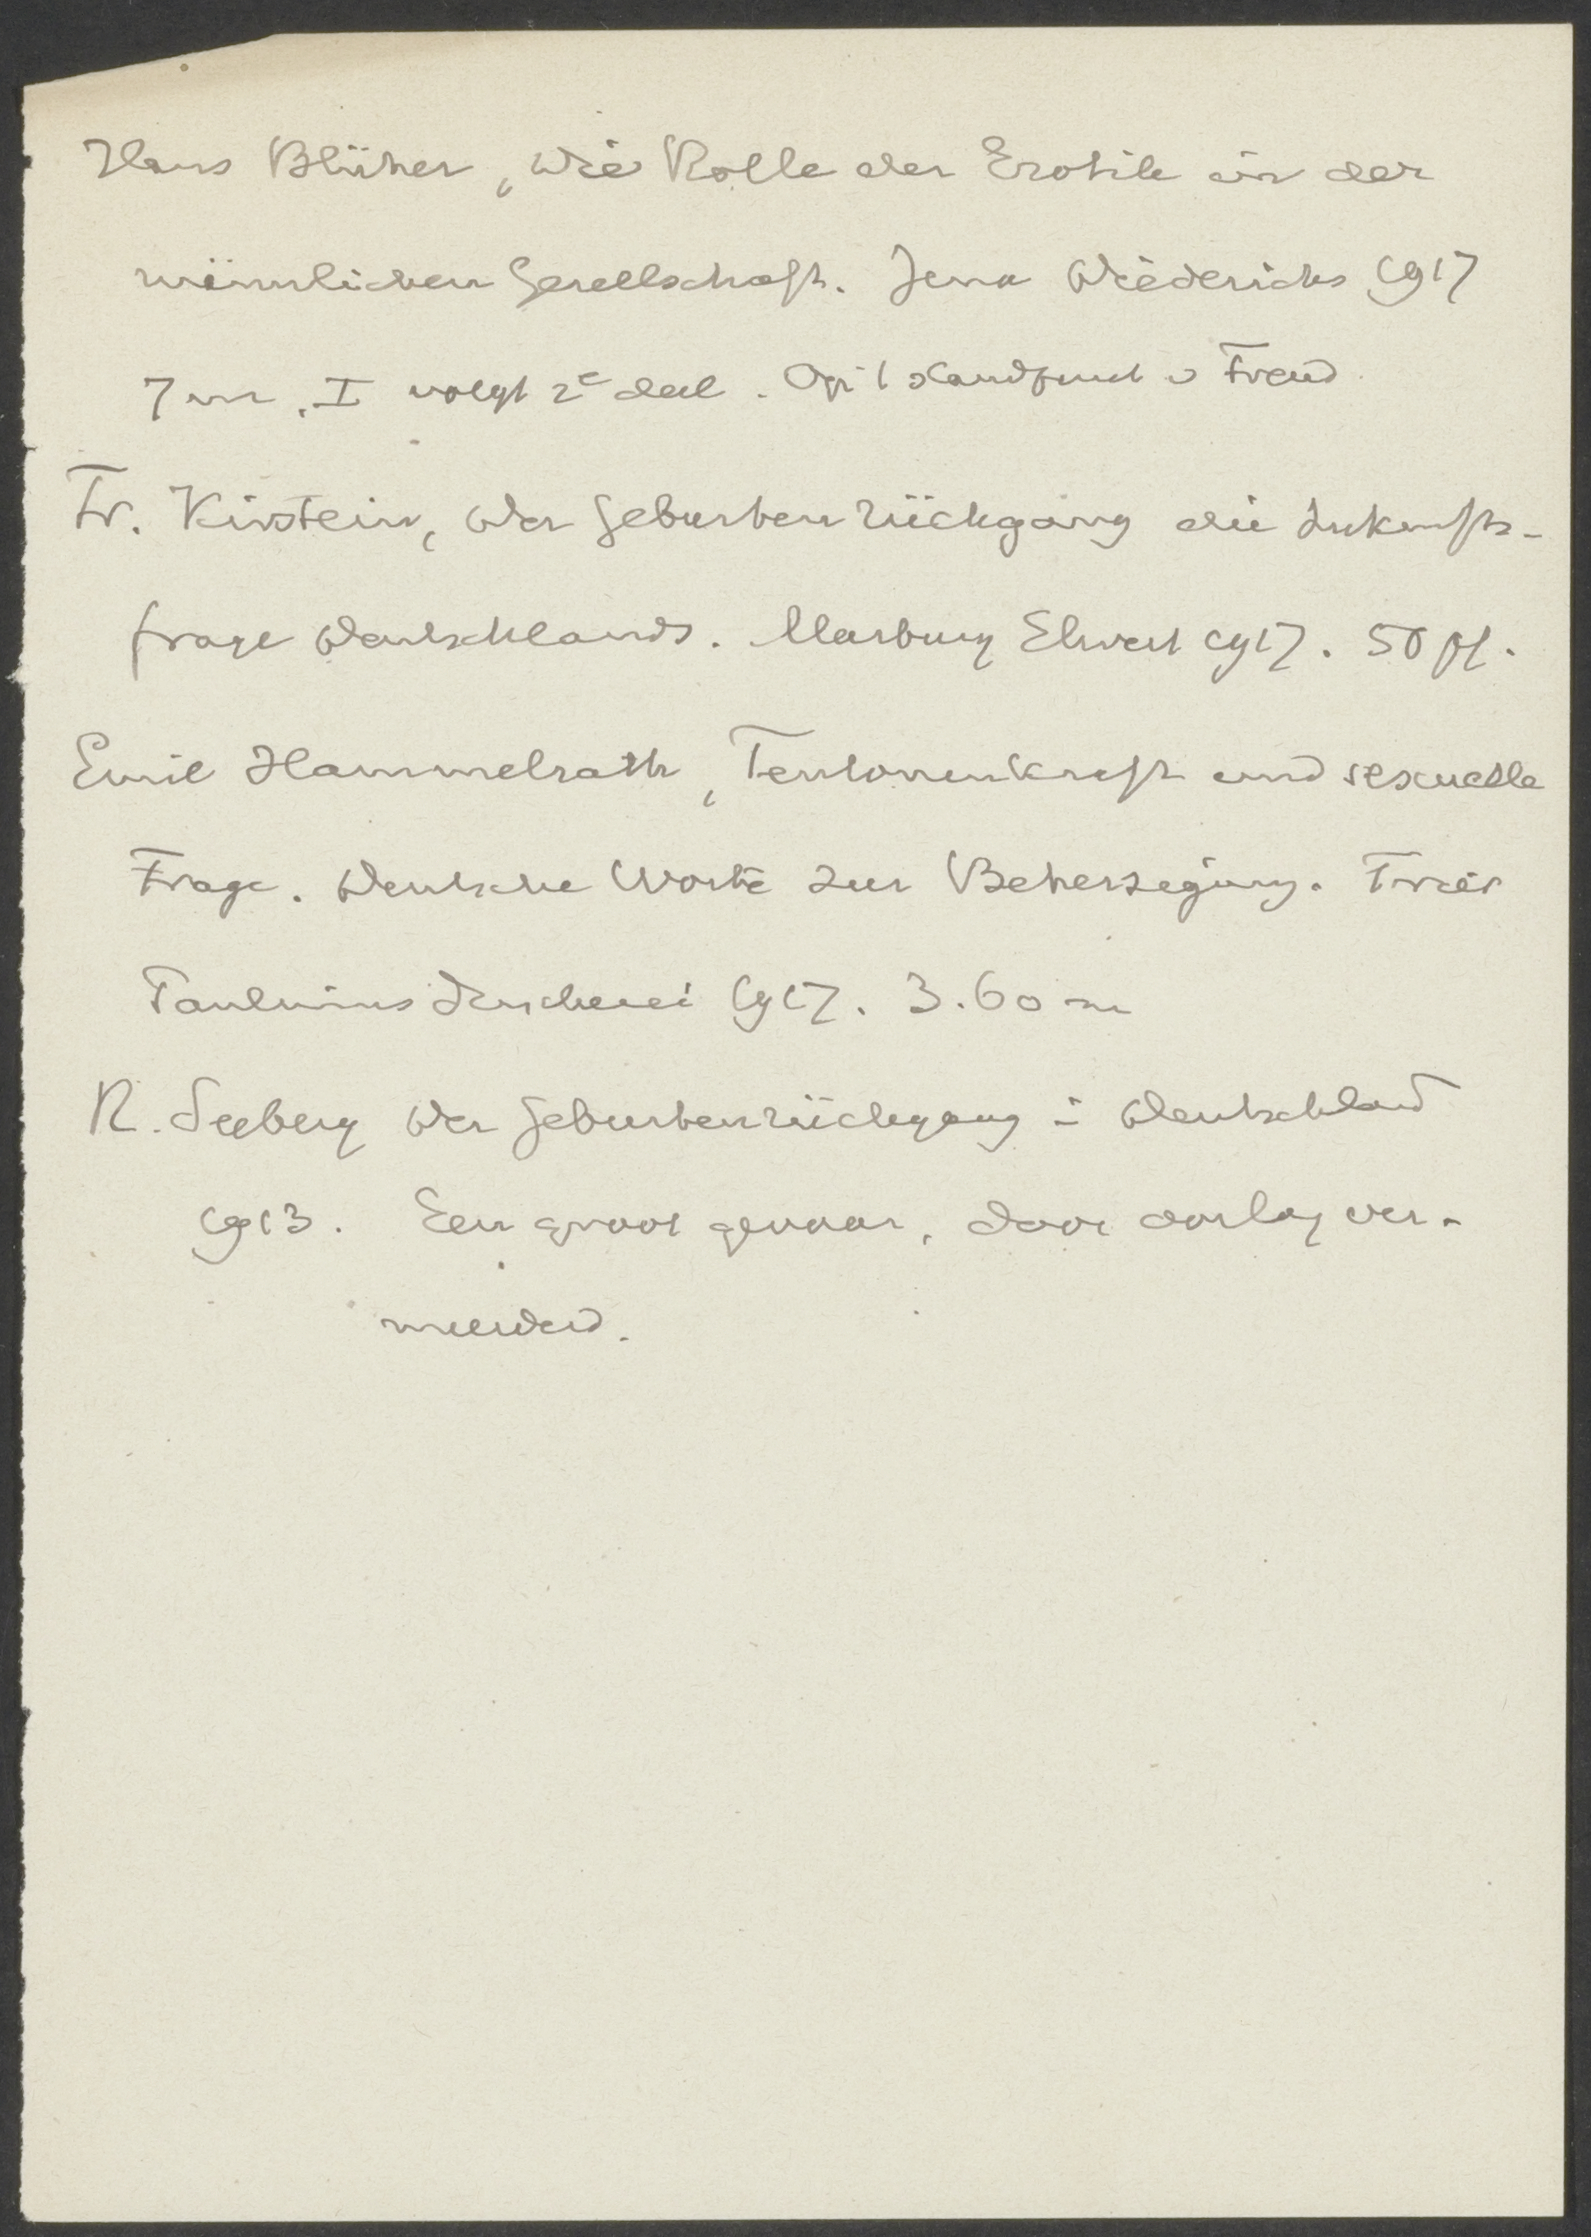 Hans Blüher, Die Rolle der Erotik in der
männlichen Gesellschaft. Jena Diederichs 1917
7 m. I volgt 2e deel. Op 't standpunt v Freud
Fr. Kirstein, Der Geburtenrückgang die Zukunfts-
frage Deutschlands. Marburg Elwert 1917. 50 pf.
Emil Hammelrath, Teutonenkraft und sexuelle
Frage. Deutsche Worte zur Beherzigung. Trier
Paulinus Druckerei 1917. 3.60 m
R. Seeberg Der Geburtenrückgang i Deutschland
1913. Een groot gevaar, door oorlog ver-
meerderd.